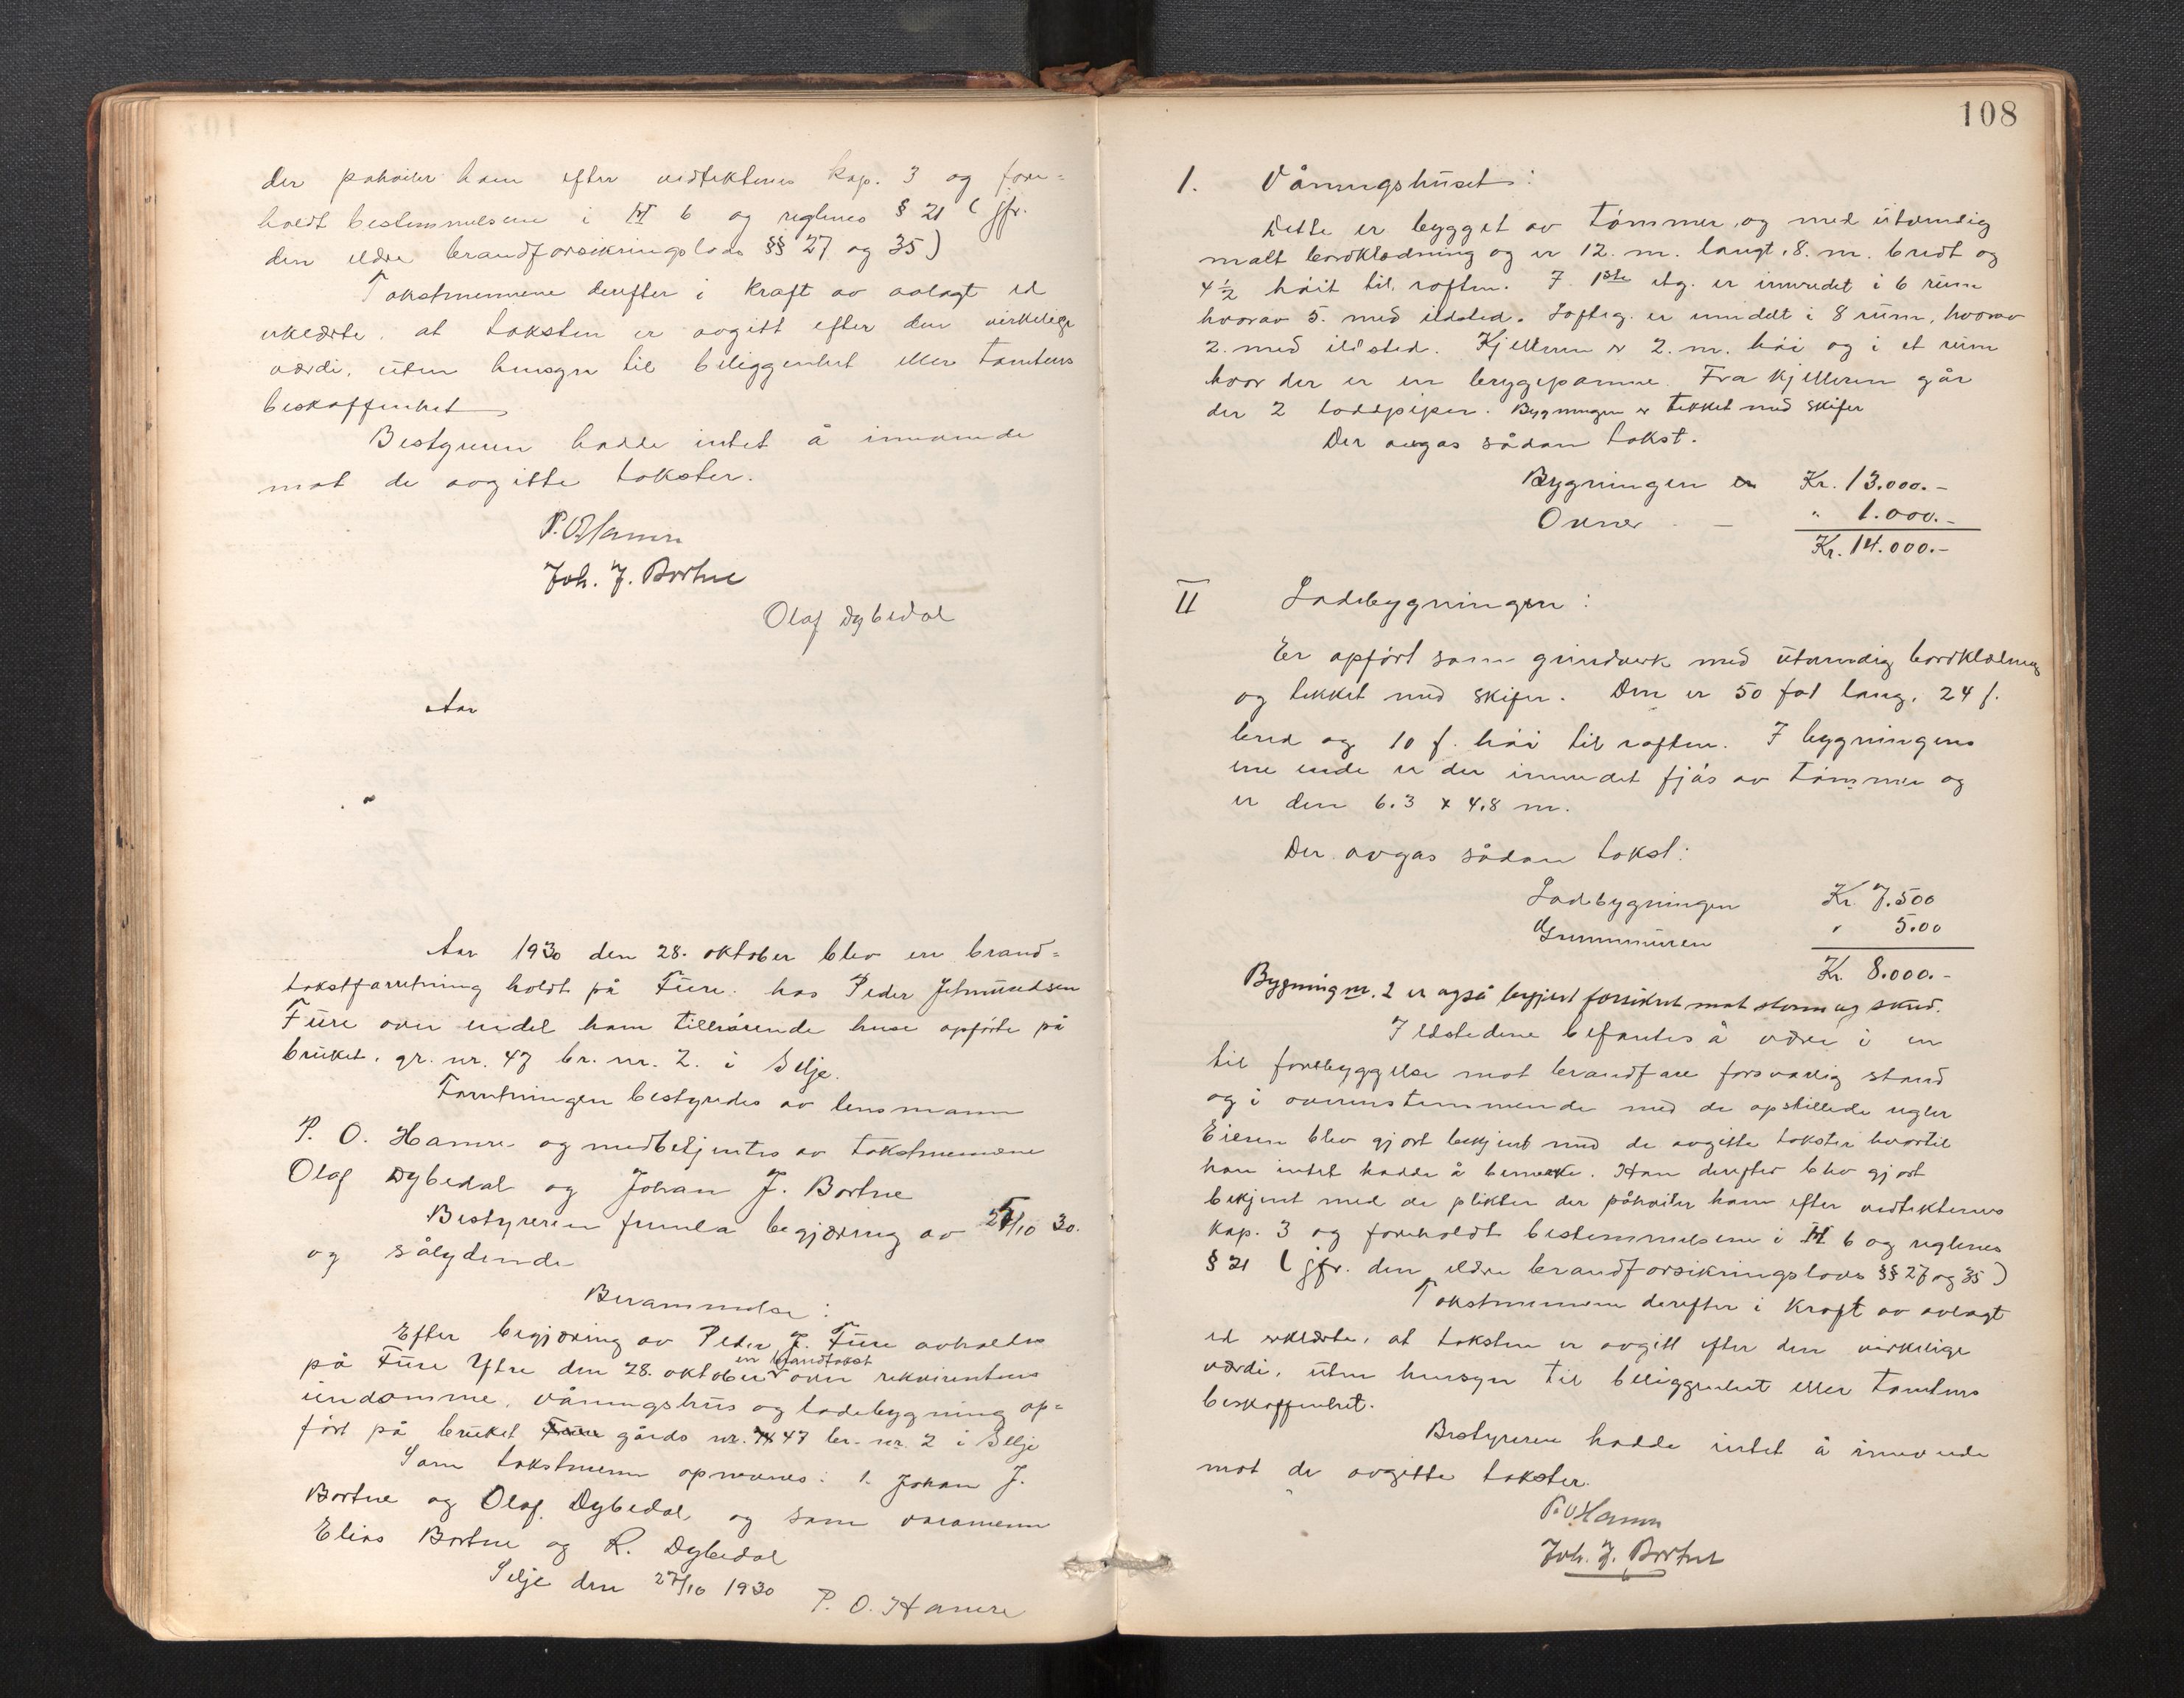 der påhviler ham efter vedtektenes kap. 3 og fore=
holdt bestemmelsene i M 6 og reglenes § 21 ( jfr.
den eldre brandforsikringslovs §§ 27 og 35)
Takstmennene derefter i kraft av avlagt ed
erklærte, at taksten er avgitt efter den virkelige
værdi, uten hensyn til beliggenhet eller tomtens
beskaffenhet
Bestyreren hadde intet å innvende
mot de avgitte takster.
P. O. Hamre
Joh. J. Bortne
Olaf Dybedal
Aar
Aar 1930 den 28. oktober blev en brand=
takstforretning holdt på Füre hos Peder Jetmundsen
Füre over endel ham tilhørende huse opførte på
bruket, gr. nr. 47 br. nr. 2. i Selje.
Forretningen bestyredes av lensmann
P. O. Hamre og medbetjentes av takstmennene
Olaf Dybedal og Johan J. Bortne
Bestyreren fremla begjæring av 27/10 30.
og sålydende
Berammelse:
Efter begjæring av Peder J. Füre avholdes
på Füre Ytre den 28. oktober en brandtakst over rekvirentens
eiendomme, våningshus og ladebygning op=
ført på bruket Füre gårds nr. 47 br. nr. 2 i Selje
Som takstmenn opnevnes: 1. Johan J.
Bortne og Olaf Dybedal, og som varamenn
Elias Bortne og R. Dybedal
Selje den 27/10 1930
P. O. Hamre
108
1. Våningshuset:
Dette er bygget av tømmer, og med utvendig
malt bordklædning og er 12. m. langt, 8. m. bredt og
4 1/2 høit til røften. I 1ste etg. er innredet i 6 rum
hvorav 5. med ildsted. Loftetg. er inndelt i 8 rum, hvorav
2. med ildsted. Kjelleren er 2. m. høi og i et rum
hvor der er en bryggepanne. Fra kjelleren går
der 2 loddpiper. Bygningen er tekket med skifer
Der avgas sådan takst.
Bygningen en Kr. 13.000.-
Ovner - " 1.000.-
Kr. 14.000.-
II Ladebygningen:
Er opført som grindverk med utvendig bordklædning
og tekket med skifer. Den er 50 fot lang, 24 f.
bred og 10 f. høi til røften. I bygningens
ene ende er der innredet fjøs av tømmer og
er den 6.3 x 4.8 m.
Der avgas sådan takst:
Ladebygningen Kr. 7.500
Grunnmuren " 5.00
Kr. 8.000.-
Bygning nr. 2 er også begjert forsikret mot storm og skred.
Ildstedene befantes å være i en
til forebyggelse mot brandfare forsvarlig stand
og i overenstemmende med de opstillede regler
Eieren blev gjort bekjent med de avgitte takster hvortil
han intet hadde å bemerke. Han derefter blev gjort
bekjent med de plikter der påhviler ham efter vedtektenes
kap. 3 og foreholdt bestemmelsene i M 6 og reglenes
§ 21 ( jfr. den eldre brandforsikringslovs §§ 27 og 35 )
Takstmennene derefter i kraft av avlagt
ed erklærte, at taksten er avgitt efter den virkelige
værdi, uten hensyn til beliggenhet eller tomtens
beskaffenhet.
Bestyreren hadde intet å innvende
mot de avgitte takster.
P. O. Hamre
Joh. J. Bortne